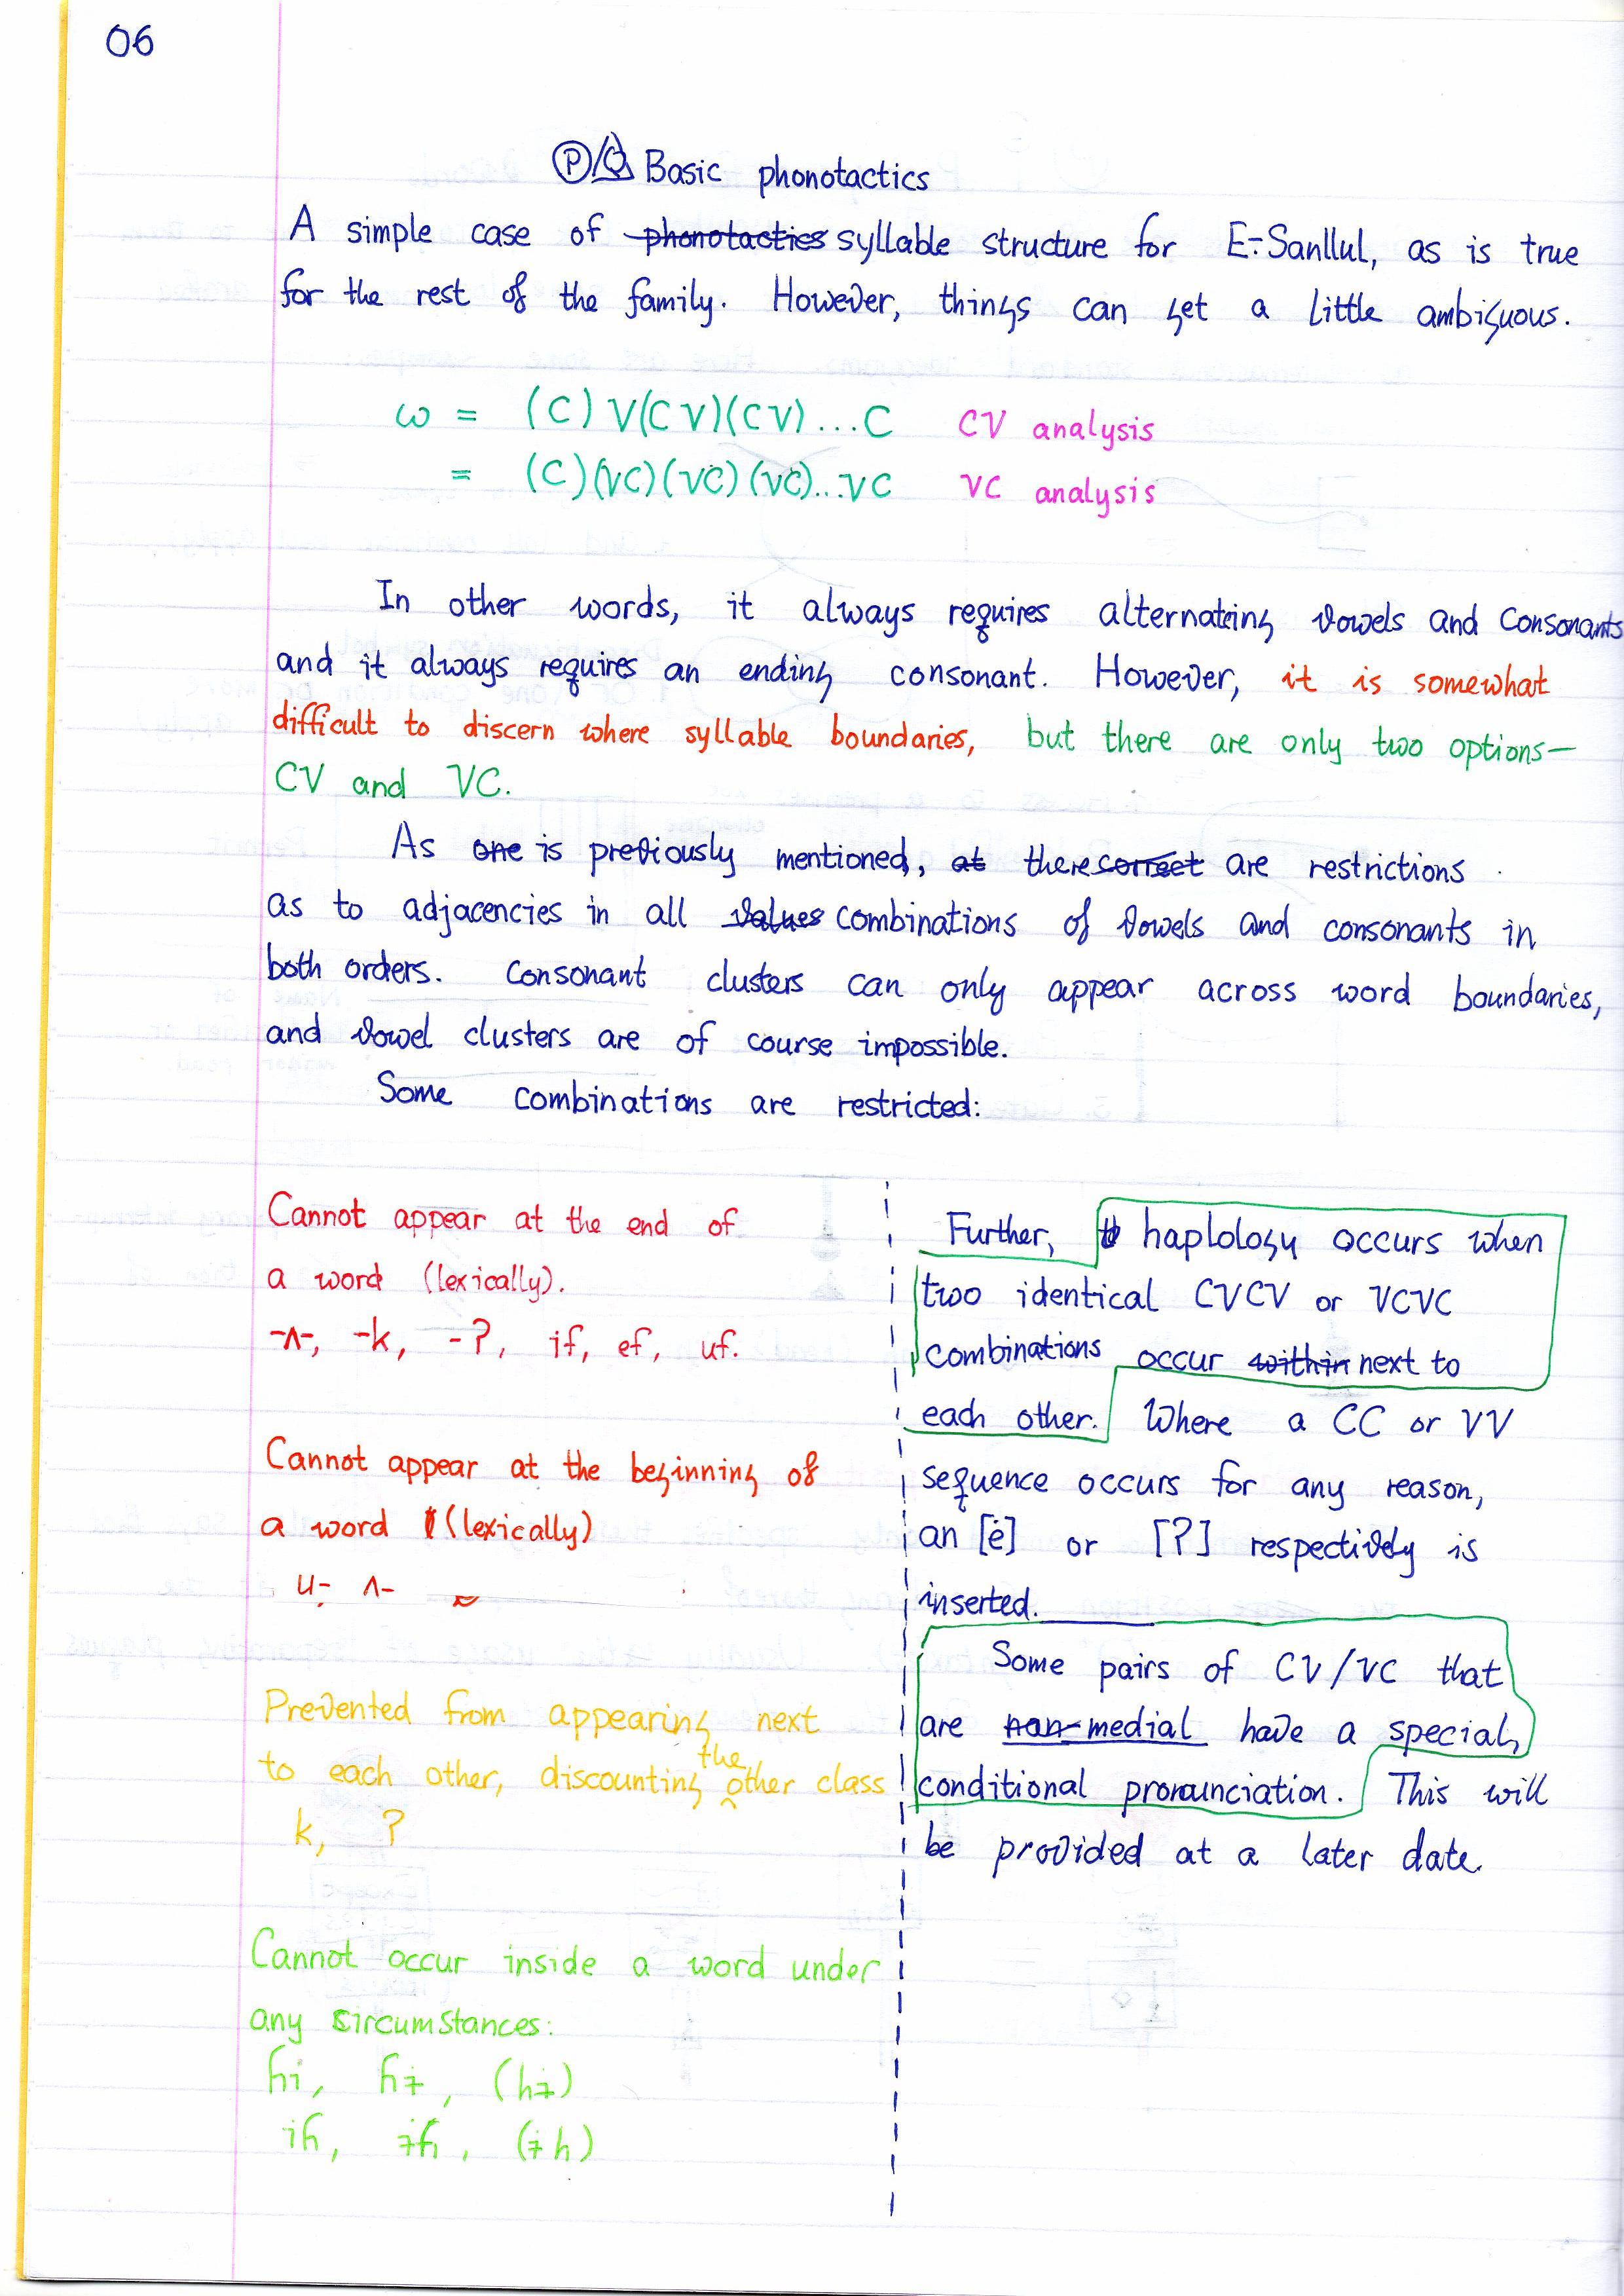 06
Ⓟ/Q Basic phonotactics
A simple case of ~~phonotactics~~ syllable structure for E-Sanllul, as is true
for the rest of the family. However, things can get a little ambiguous.
ω = (C)V(CV)(CV)...C CV analysis
= (C)(VC)(VC)(VC)...VC VC analysis
In other words, it always requires alternating vowels and consonants
and it always requires an ending consonant. However, it is somewhat
difficult to discern where syllable boundaries, but there are only two options—
CV and VC.
As ~~one~~ is previously mentioned, ~~at~~ there ~~correct~~ are restrictions
as to adjacencies in all ~~values~~ combinations of vowels and consonants in
both orders. Consonant clusters can only appear across word boundaries,
and vowel clusters are of course impossible.
Some combinations are restricted:
Cannot appear at the end of
a word (lexically).
-ʌ-, -k, -ʔ, if, ef, uf.
Cannot appear at the beginning of
a word (lexically)
u-, ʌ-
Prevented from appearing next
to each other, discounting the other class
k, ʔ
Cannot occur inside a word under
any circumstances:
ɦi, ɦɨ, (hɨ)
iɦ, ɨɦ, (ɨh)
Further, haplology occurs when
two identical CVCV or VCVC
combinations occur ~~within~~ next to
each other. Where a CC or VV
sequence occurs for any reason,
an [ė] or [ʔ] respectively is
inserted.
Some pairs of CV/VC that
are ~~non-~~medial have a special,
conditional pronunciation. This will
be provided at a later date.